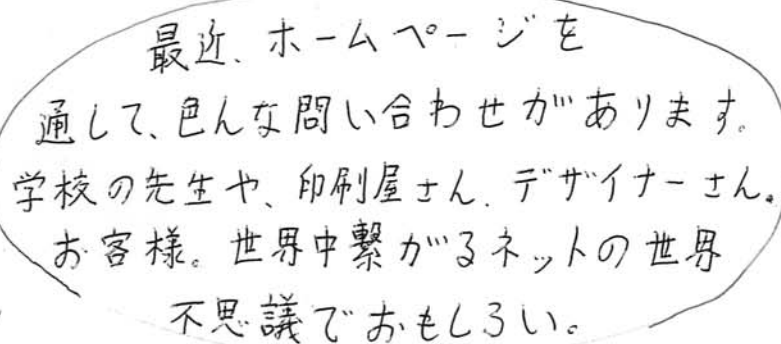 最近、ホームページを
通して、色んな問い合わせがあります。
学校の先生や、印刷屋さん、デザイナーさん。
お客様。世界中繋がるネットの世界
不思議でおもしろい。